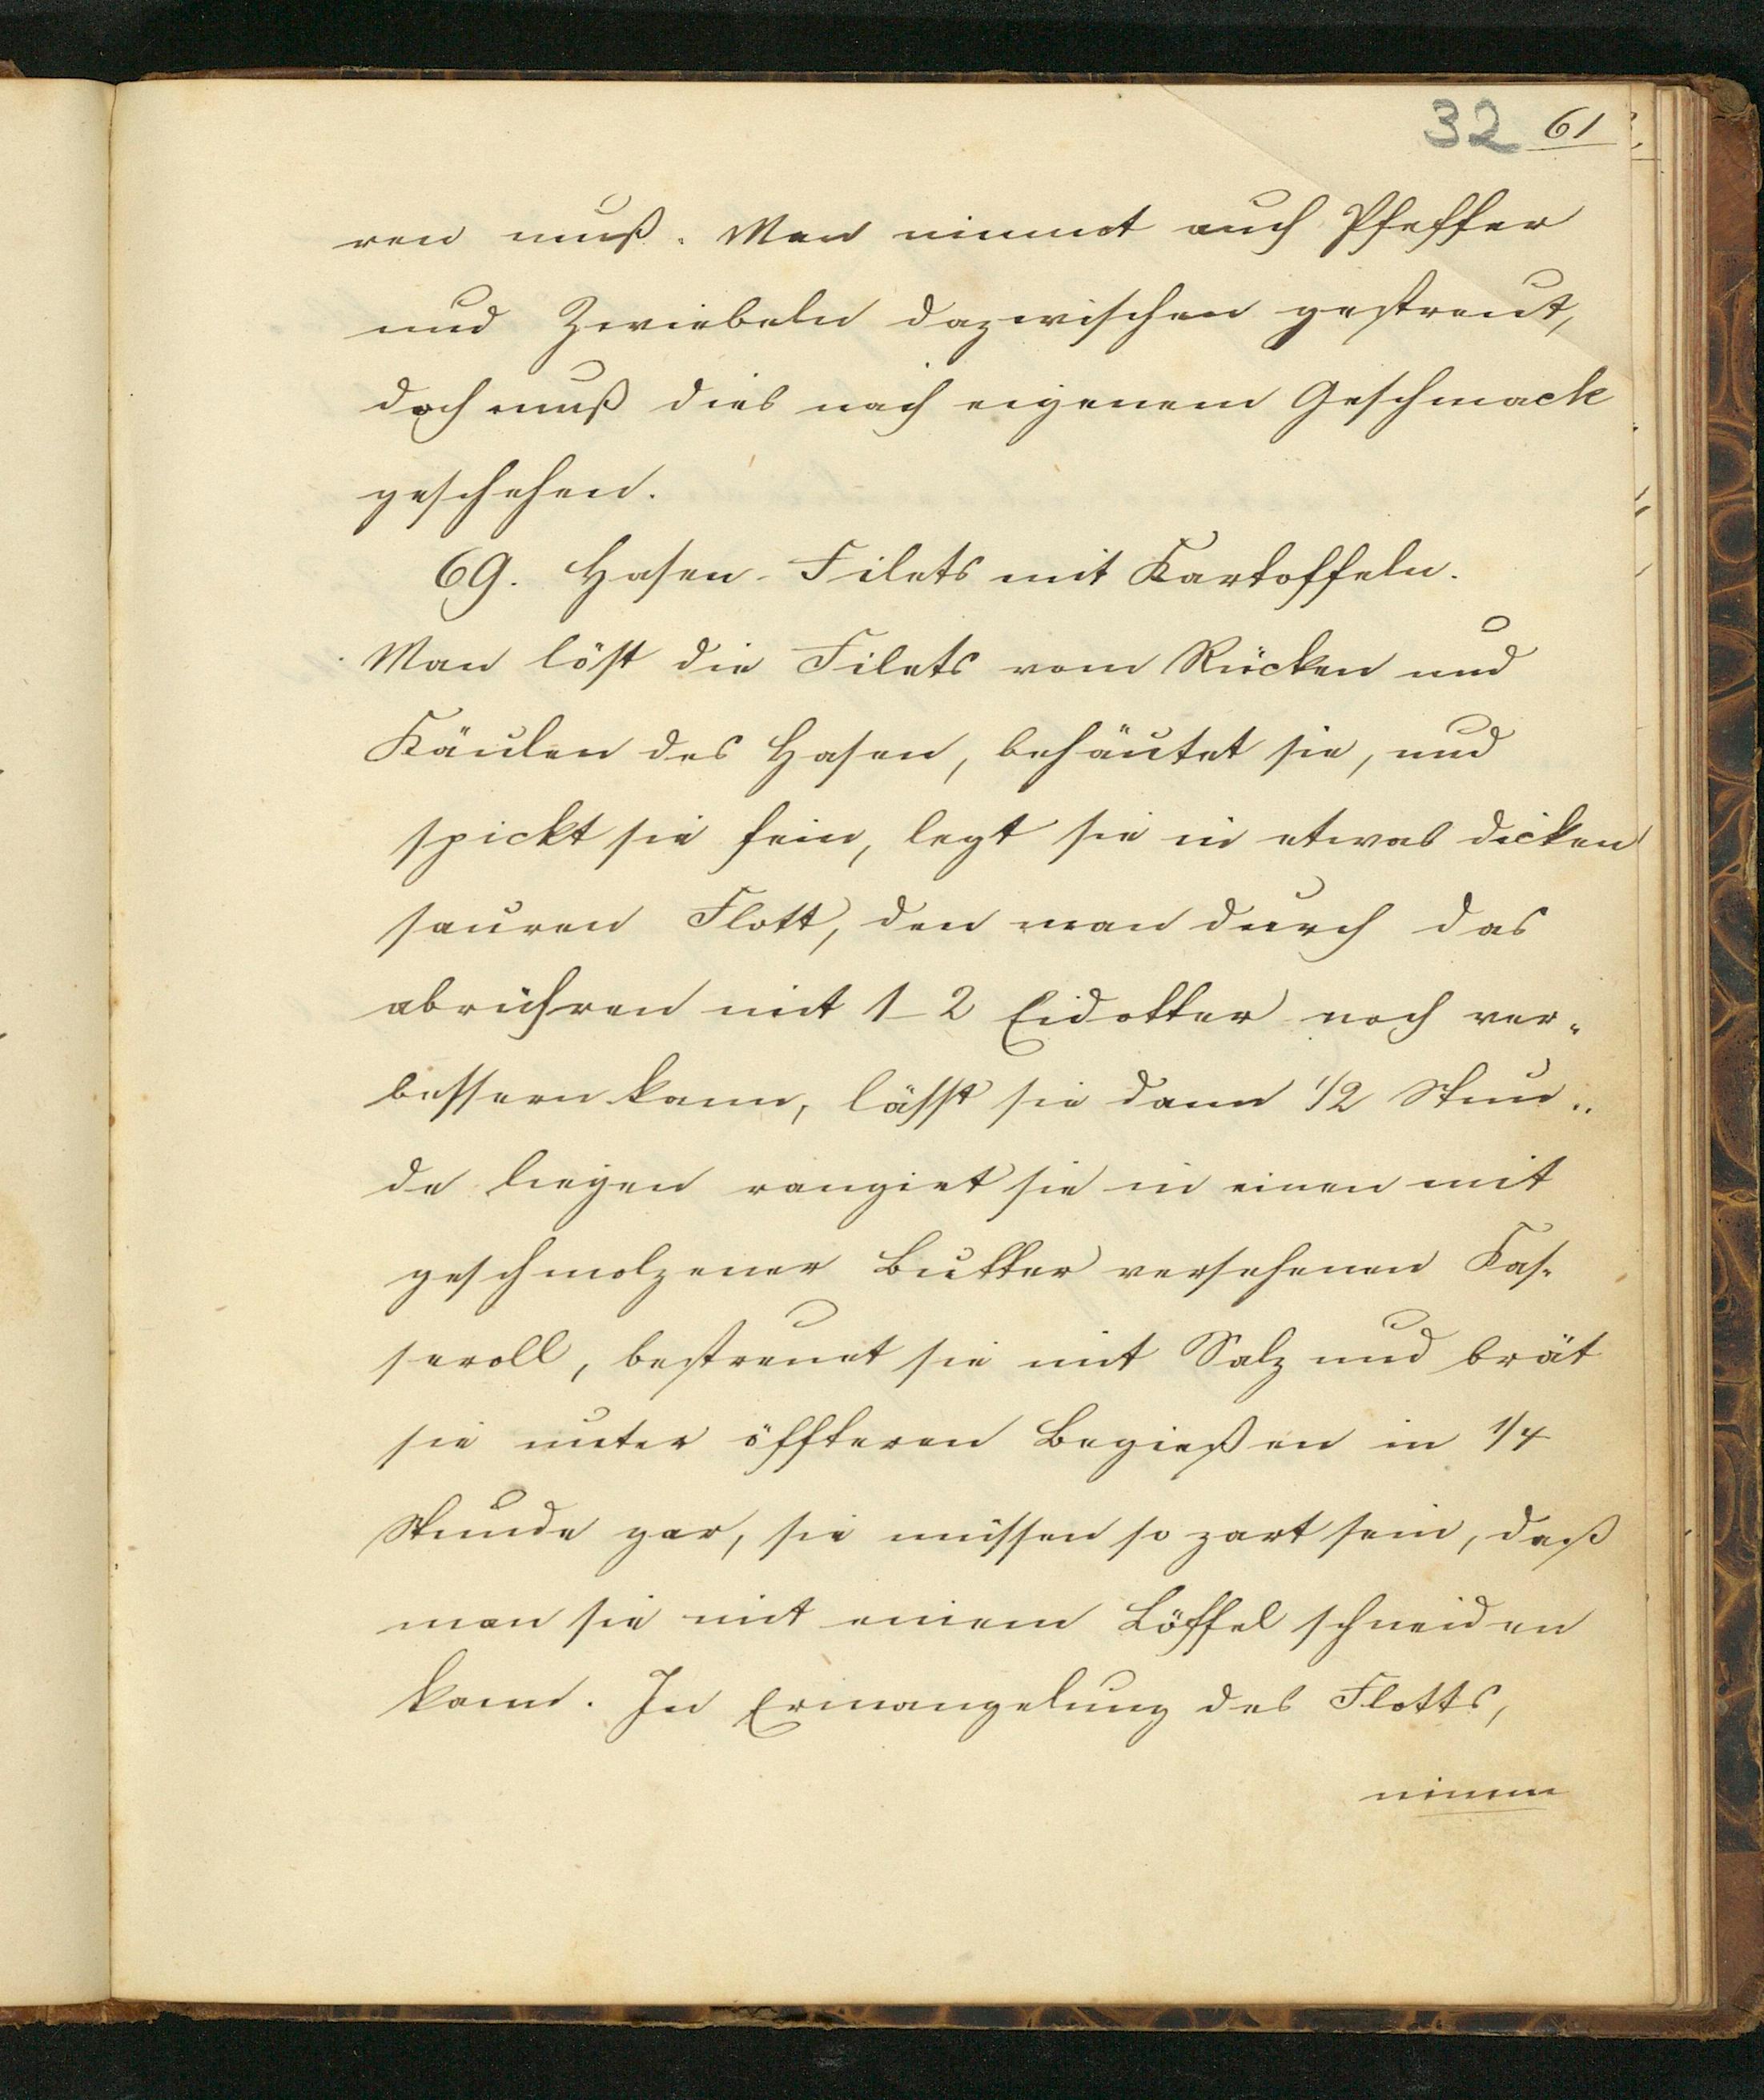 32 61
ren muß. Man nimmt auch Pfeffer
und Zwiebeln dazwischen gestreut,
doch muß dies nach eigenem Geschmack
geschehen.
69. Hasen-Filets mit Kartoffeln.
Man löst die Filets vom Rücken und
Käulen des Hasen, behäutet sie, und
spickt sie fein, legt sie in etwas dicken
sauren Flott, den man durch das
abrühren mit 1-2 Eidotter noch ver-
bessern kann, lässt sie dann 1/2 Stun-
de liegen rangiet sie in einen mit
geschmolzener Butter versehenen Kas-
seroll, bestreuet sie mit Salz und brät
sie unter öffteren Begießen in 1/4
Stunde gar, sie müssen so zart sein, daß
man sie mit einem Löffel schneiden
kann. In Ermangelung des Flotts,
nimm